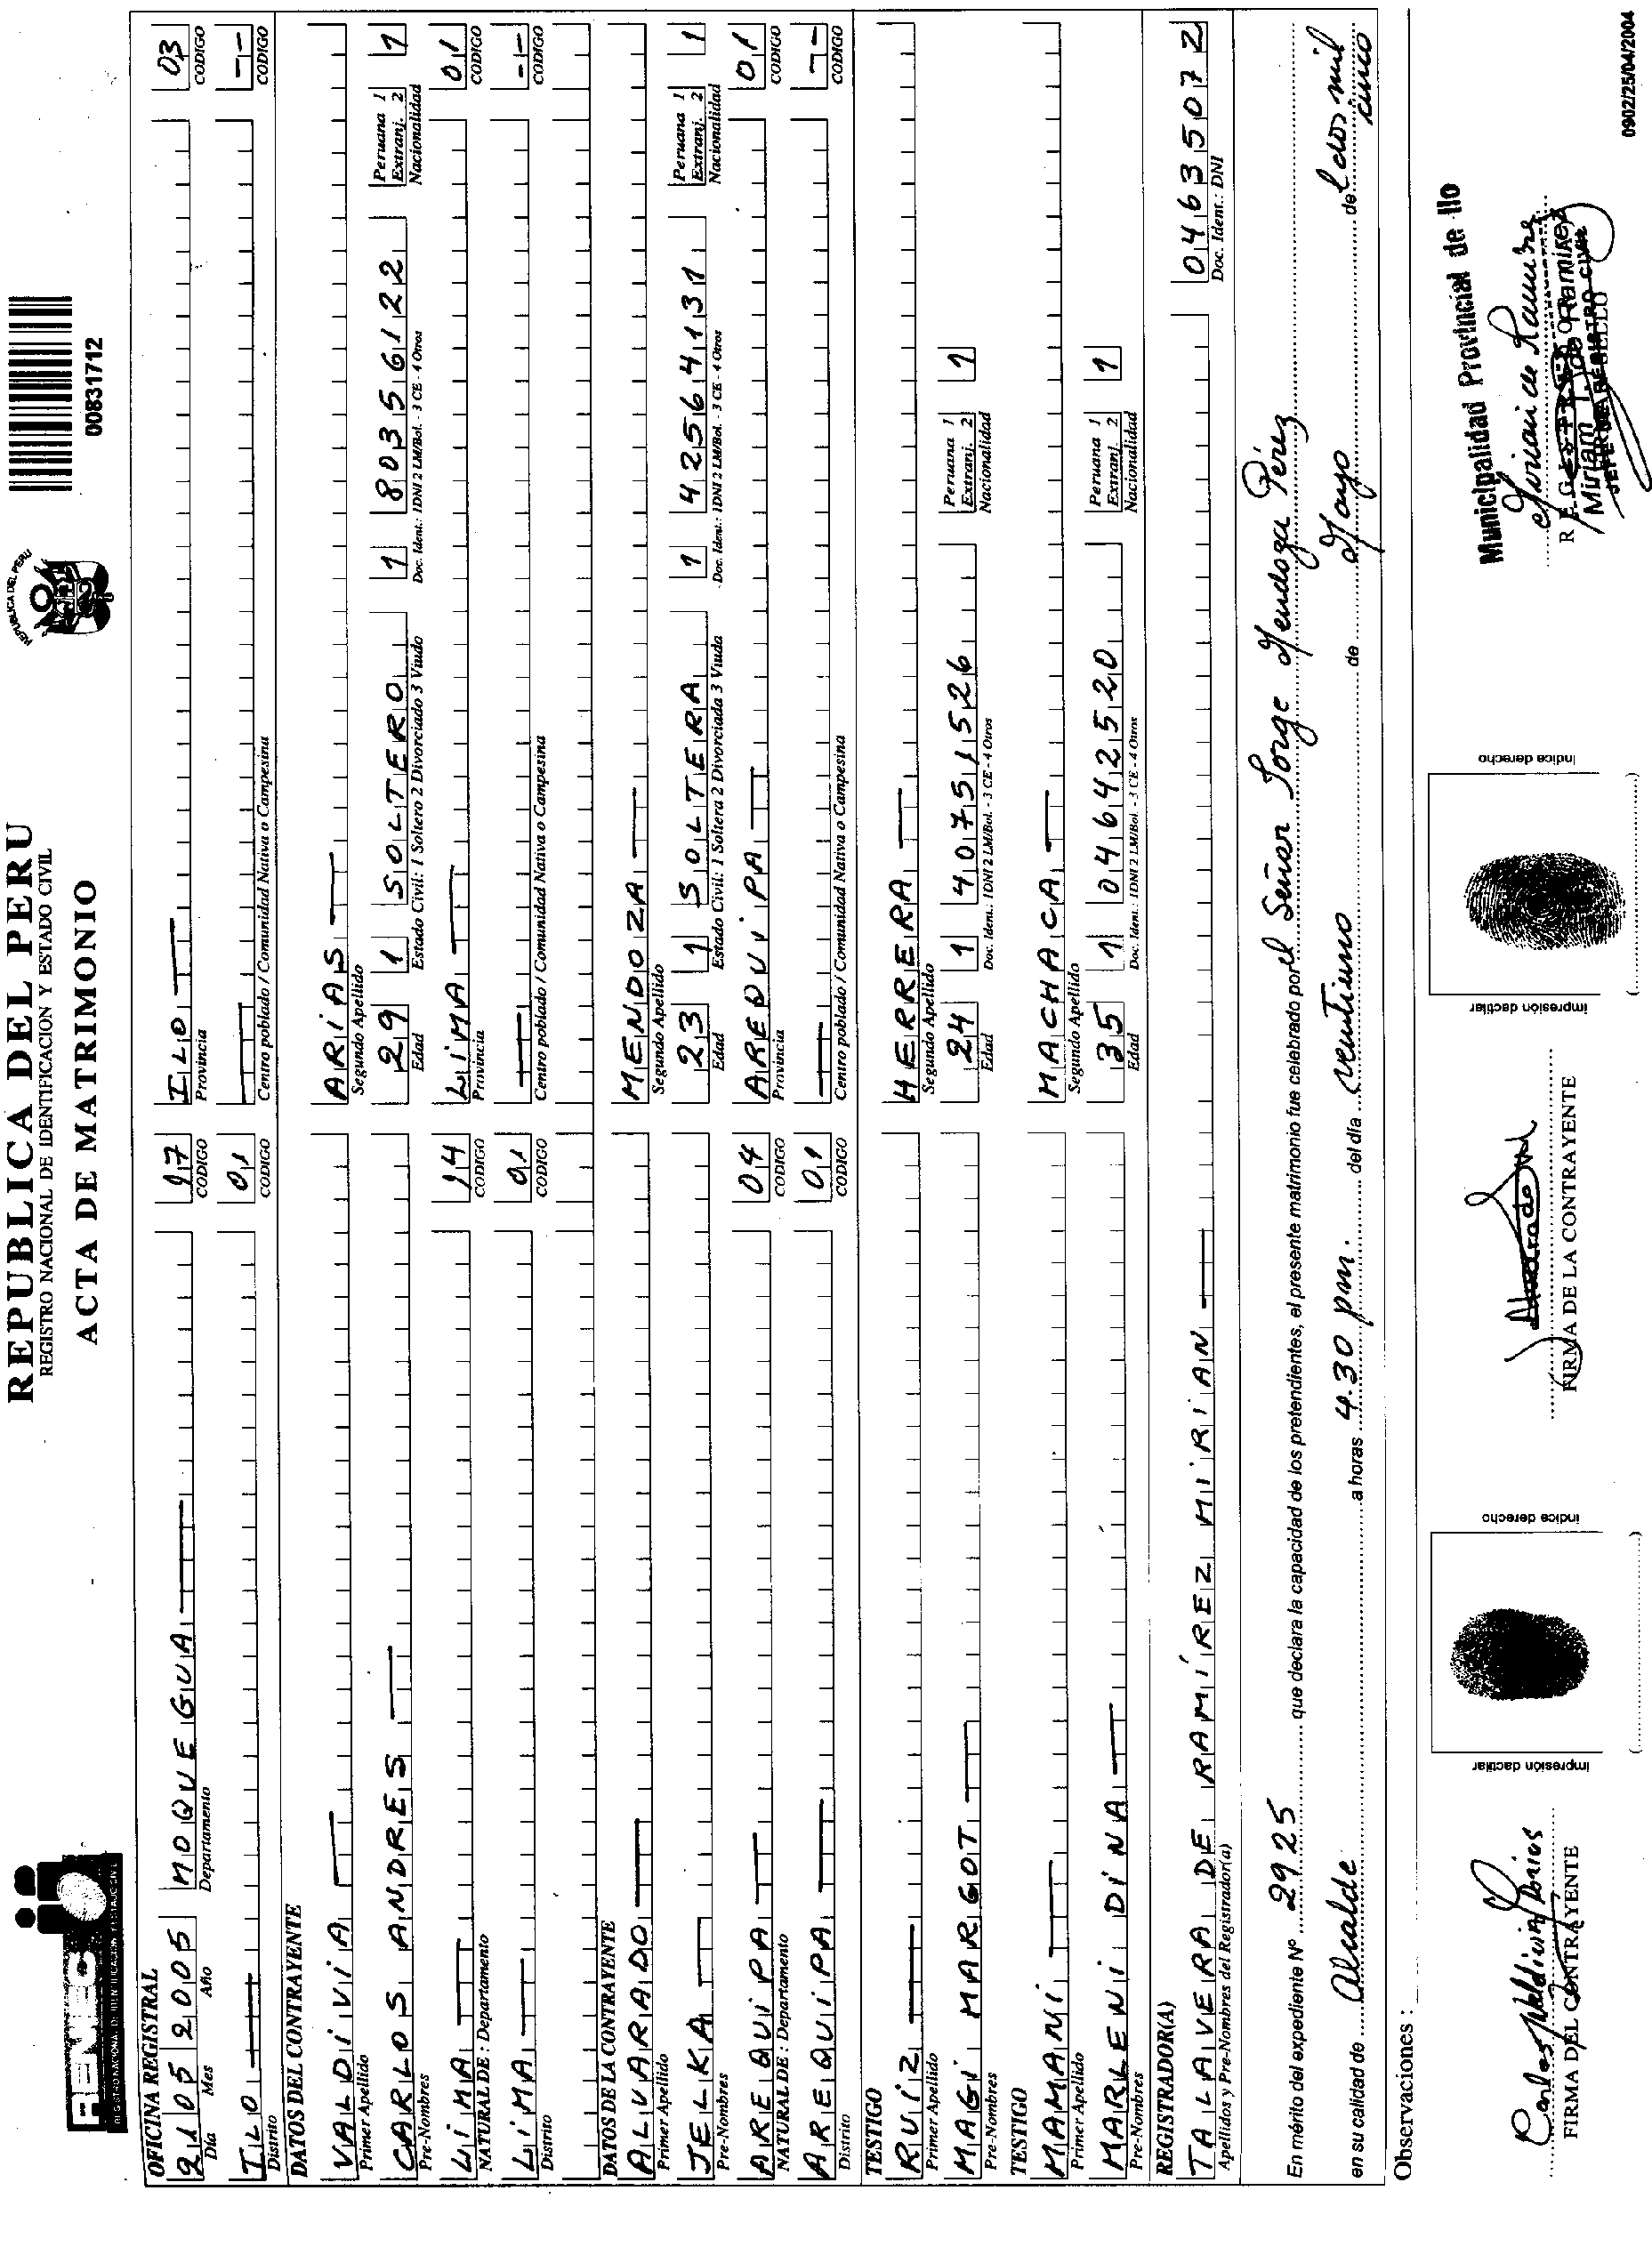 RENIEC
REGISTRO NACIONAL DE IDENTIFICACION Y ESTADO CIVIL
REPUBLICA DEL PERU
REGISTRO NACIONAL DE IDENTIFICACION Y ESTADO CIVIL
ACTA DE MATRIMONIO
REPUBLICA DEL PERU
00831712
OFICINA REGISTRAL
21 05 2005 MOQUEGUA 17 ILO 03
Día Mes Año Departamento CODIGO Provincia CODIGO
ILO 01 --
Distrito CODIGO Centro poblado / Comunidad Nativa o Campesina CODIGO
DATOS DEL CONTRAYENTE
VALDiViA ARiAS
Primer Apellido Segundo Apellido
CARLOS ANDRES 29 1 SOLTERO 1 80356122 Peruana 1 Extranj. 2 1
Pre-Nombres Edad Estado Civil: 1 Soltero 2 Divorciado 3 Viudo Doc. Ident.: 1DNI 2 LM/Bol. - 3 CE - 4 Otros Nacionalidad
LiMA 14 LiMA 01
NATURAL DE : Departamento CODIGO Provincia CODIGO
LiMA 01 --
Distrito CODIGO Centro poblado / Comunidad Nativa o Campesina CODIGO
DATOS DE LA CONTRAYENTE
ALVARADO MENDOZA
Primer Apellido Segundo Apellido
JELKA 23 1 SOLTERA 1 42564131 Peruana 1 Extranj. 2 1
Pre-Nombres Edad Estado Civil: 1 Soltera 2 Divorciada 3 Viuda Doc. Ident.: 1DNI 2 LM/Bol. - 3 CE - 4 Otros Nacionalidad
AREQUiPA 04 AREQUiPA 01
NATURAL DE : Departamento CODIGO Provincia CODIGO
AREQUiPA 01 --
Distrito CODIGO Centro poblado / Comunidad Nativa o Campesina CODIGO
TESTIGO
RUiZ HERRERA
Primer Apellido Segundo Apellido
MAGi MARGOT 24 1 40751526 Peruana 1 Extranj. 2 1
Pre-Nombres Edad Doc. Ident.: 1DNI 2 LM/Bol. - 3 CE - 4 Otros Nacionalidad
TESTIGO
MAMANi MACHACA
Primer Apellido Segundo Apellido
MARLENi DiNA 35 1 04642520 Peruana 1 Extranj. 2 1
Pre-Nombres Edad Doc. Ident.: 1DNI 2 LM/Bol. - 3 CE - 4 Otros Nacionalidad
REGISTRADOR(A)
TALAVERA DE RAMÍREZ MiRiAN 04635072
Apellidos y Pre-Nombres del Registrador(a) Doc. Ident.: DNI
En mérito del expediente Nº 2925 que declara la capacidad de los pretendientes, el presente matrimonio fue celebrado por el Señor Jorge Mendoza Pérez
en su calidad de Alcalde a horas 4.30 pm. del día veintiuno de Mayo del dos mil cinco
Observaciones :
Municipalidad Provincial de Ilo
Carlos Valdivia Arias
FIRMA DEL CONTRAYENTE
impresión dactilar
indice derecho
Alvarado
FIRMA DE LA CONTRAYENTE
impresión dactilar
indice derecho
Miriam de Ramirez
JEFE DE REGISTRO CIVIL
0902/25/04/2004